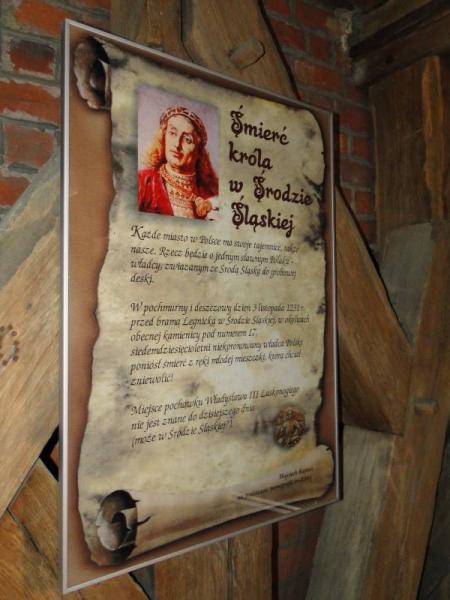 Śmierć
króla
w Środzie
Śląskiej
Każde miasto w Polsce ma swoje tajemnice, także
nasze. Rzecz będzie o jednym sławnym Polaku -
władcy, związanym ze Środą Śląską do grobowej
deski.
W pochmurny i deszczowy dzień 3 listopada 1231 r.
przed bramą Legnicką w Środzie Śląskiej, w okolicach
obecnej kamienicy pod numerem 17,
siedemdziesięcioletni niekoronowany władca Polski
poniósł śmierć z ręki młodej mieszczki, którą chciał
zniewolić!
Miejsce pochówku Władysława III Laskonogiego
nie jest znane do dzisiejszego dnia
(może w Środzie Śląskiej?)